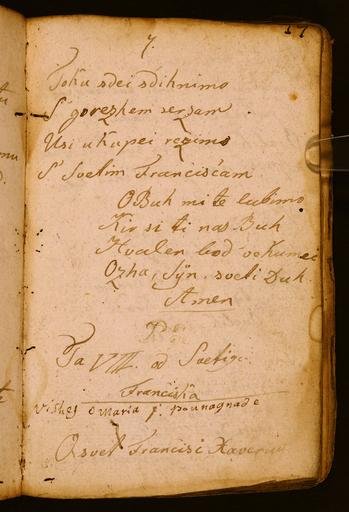 7.
Toku sdei sdihnimo
S' gorezhem serzam
Usi ukupei rezimo
S' Svetim Franciscam
O Buh mi te lubimo
Kir si ti nas Buh
Hvalen bod vekumei
Ozha, Syn, sveti Duh.
Amen
Ta VIII. od Svetiga
Franciska
O Maria
O svet Francisc Xaverius